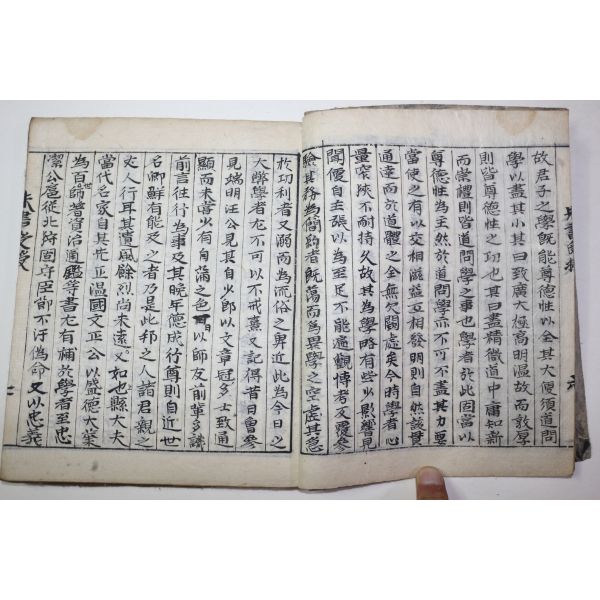 故君子之學既能尊德性以全其大便須道問
學以盡其小其曰致廣大極高明溫故而敦厚
則皆尊德性之功也其曰盡精微道中庸知新
而崇禮則皆道問學之事也學者於此固當以
尊德性為主然於道問學亦不可不盡其力要
當使之有以交相滋益互相發明則自然該貫
通達而於道體之全無欠闕處矣今時學者心
量窄狹不耐持久故其為學略有些少影響見
聞便自主張以為至足不能遍觀博考反覆參
驗其務為簡約者既蕩而為異學之空虛其急
於功利者又溺而為流俗之卑近此為今日之
大弊學者尤不可以不戒熹又記得昔日曾參
見端明汪公見其自少即以文章冠多士致通
顯而未嘗少有自滿之色日以師友前輩多識
前言往行為事及其晚年德成行尊則自近世
名卿鮮有能及之者乃是此邦之人諸君觀之
丈人行耳其遺風餘烈尚未遠又如也縣大夫
當代名家自其先正溫國文正公以盛德大業
為百世師著資治通鑑等書尤有補於學者至忠
潔公扈從北狩固守臣節不汙偽命又以忠義